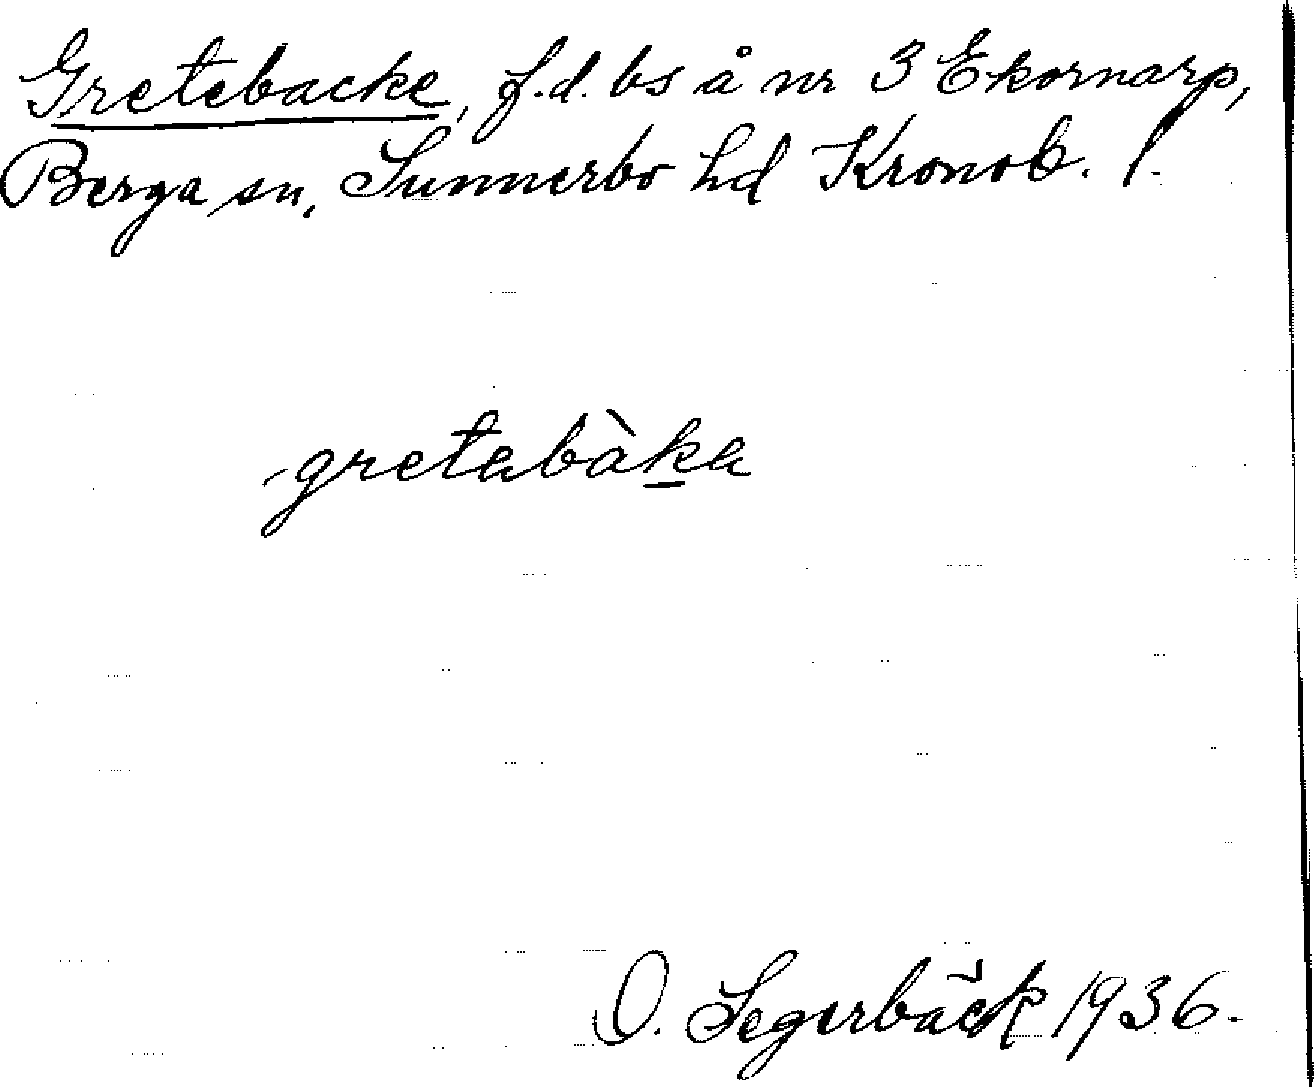 Gretebacke, f.d. bs å nr 3 Ekornarp,
Berga sn, Sunnerbo hd Kronob. l.
gretabàka
O. Segerbäck 1936.